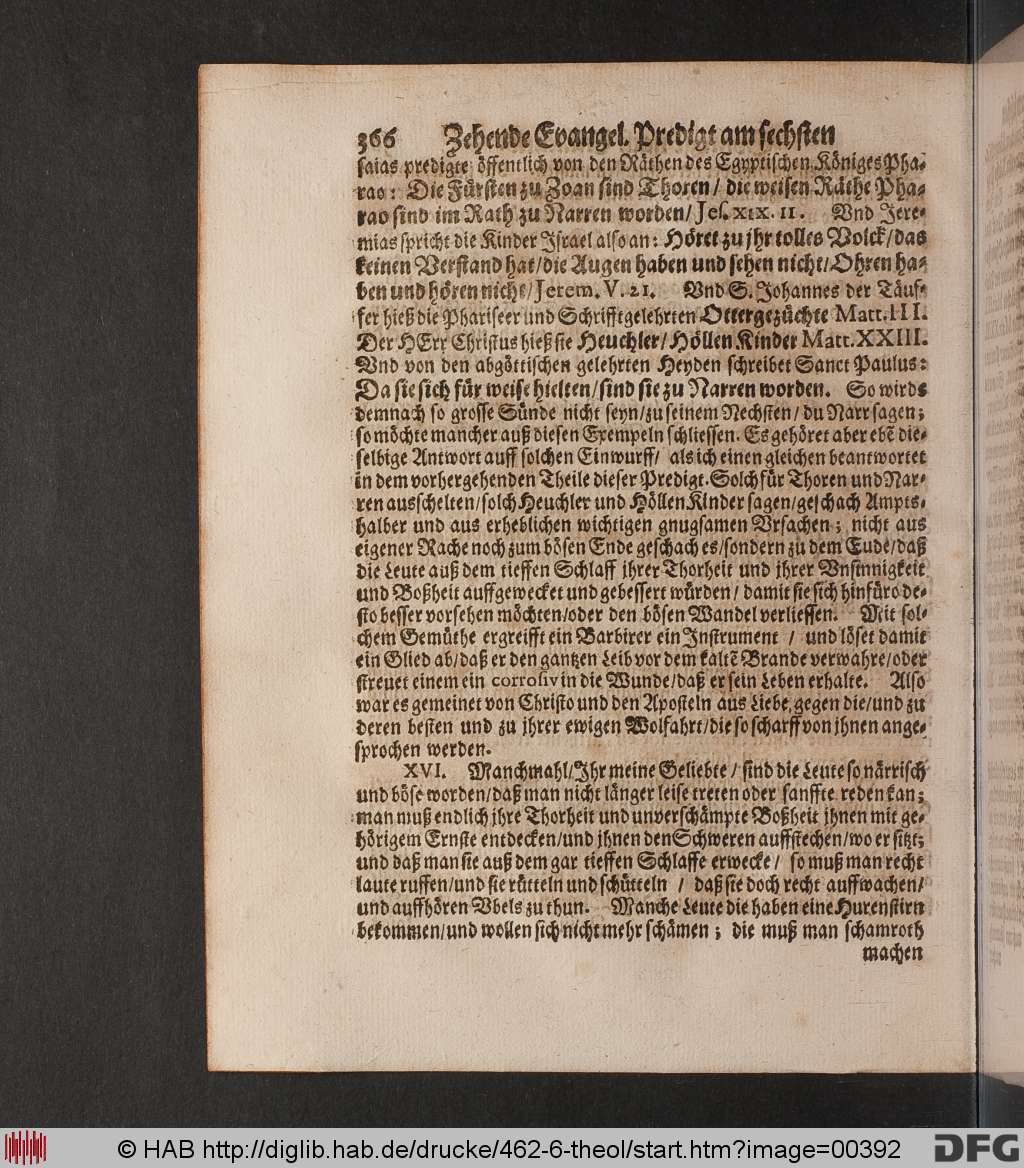 366 Zehende Evangel. Predigt am sechsten
saias predigte öffentlich von den Räthen des Egyptischen Königes Pha-
rao: Die Fürsten zu Zoan sind Thoren/ die weisen Räthe Pha-
rao sind im Rath zu Narren worden/ Jes. XIX. 11. Vnd Jere-
mias spricht die Kinder Israel also an: Höret zu jhr tolles Volck/ das
keinen Verstand hat/ die Augen haben und sehen nicht/ Ohren ha-
ben und hören nicht/ Jerem. V. 21. Vnd S. Johannes der Täuf-
fer hieß die Phariseer und Schrifftgelehrten Ottergezüchte Matt. III.
Der HErr Christus hieß sie Heuchler/ Höllen Kinder Matt. XXIII.
Vnd von den abgöttischen gelehrten Heyden schreibet Sanct Paulus:
Da sie sich für weise hielten/ sind sie zu Narren worden. So wirds
demnach so grosse Sünde nicht seyn/ zu seinem Nechsten/ du Narr sagen;
so möchte mancher auß diesen Exempeln schliessen. Es gehöret aber ebē die-
selbige Antwort auff solchen Einwurff/ als ich einen gleichen beantwortet
in dem vorhergehenden Theile dieser Predigt. Solch für Thoren und Nar-
ren ausschelten/ solch Heuchler und Höllen Kinder sagen/ geschach Ampts-
halber und aus erheblichen wichtigen gnugsamen Vrsachen; nicht aus
eigener Rache noch zum bösen Ende geschach es/ sondern zu dem Eude/ daß
die Leute auß dem tieffen Schlaff jhrer Thorheit und jhrer Vnsinnigkeit
und Boßheit auffgewecket und gebessert würden/ damit sie sich hinfüro de-
sto besser vorsehen möchten/ oder den bösen Wandel verliessen. Mit sol-
chem Gemüthe ergreifft ein Barbirer ein Instrument / und löset damit
ein Glied ab/ daß er den gantzen Leib vor dem kaltē Brande verwahre/ oder
streuet einem ein corrosiv in die Wunde/ daß er sein Leben erhalte. Also
war es gemeinet von Christo und den Aposteln aus Liebe, gegen die/ und zu
deren besten und zu jhrer ewigen Wolfahrt/ die so scharff von jhnen ange-
sprochen werden.
XVI. Manchmahl/ Ihr meine Geliebte / sind die Leute so närrisch
und böse worden/ daß man nicht länger leise treten oder sanffte reden kan;
man muß endlich jhre Thorheit und unverschämpte Boßheit jhnen mit ge-
hörigem Ernste entdecken/ und jhnen den Schweren auffstechen/ wo er sitzt;
und daß man sie auß dem gar tieffen Schlaffe erwecke/ so muß man recht
laute ruffen/ und sie rütteln und schütteln / daß sie doch recht auffwachen/
und auffhören Vbels zu thun. Manche Leute die haben eine Hurenstirn
bekommen/ und wollen sich nicht mehr schämen; die muß man schamroth
machen
© HAB http://diglib.hab.de/drucke/462-6-theol/start.htm?image=00392
DFG